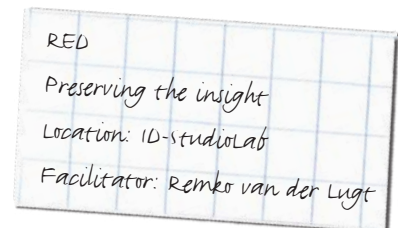 RED
Preserving the insight
Location: ID-StudioLab
Facilitator: Remko van der Lugt